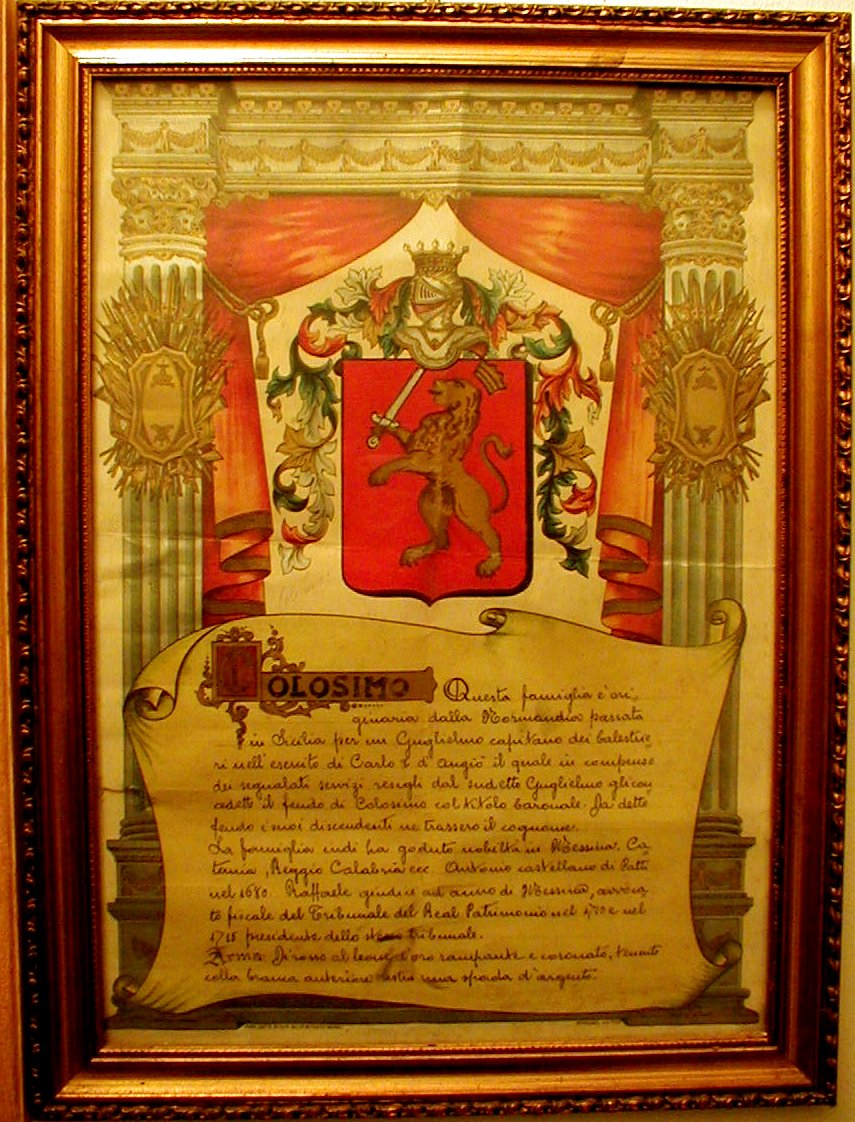 COLOSIMO Questa famiglia è ori-
ginaria dalla Normandia passata
in Sicilia per un Guglielmo capitano dei balestrie-
ri nell'esercito di Carlo I d'Angiò il quale in compenso
dei segnalati servizi resigli dal sudetto Guglielmo gli con
cedette il feudo di Colosimo col titolo baronale. Da detto
feudo i suoi discendenti ne trassero il cognome.
La famiglia indi ha goduto nobiltà in Messina, Ca
tania, Reggio Calabria ecc. Antonio castellano di Patti
nel 1680. Raffaele giudice ad anno di Messina, avvoca
to fiscale del Tribunale del Real Patrimonio nel e nel
presidente dello stesso tribunale.
Arma: Di rosso al leone d'oro rampante e coronato, tenente
colla branca anteriore destra una spada d'argento.